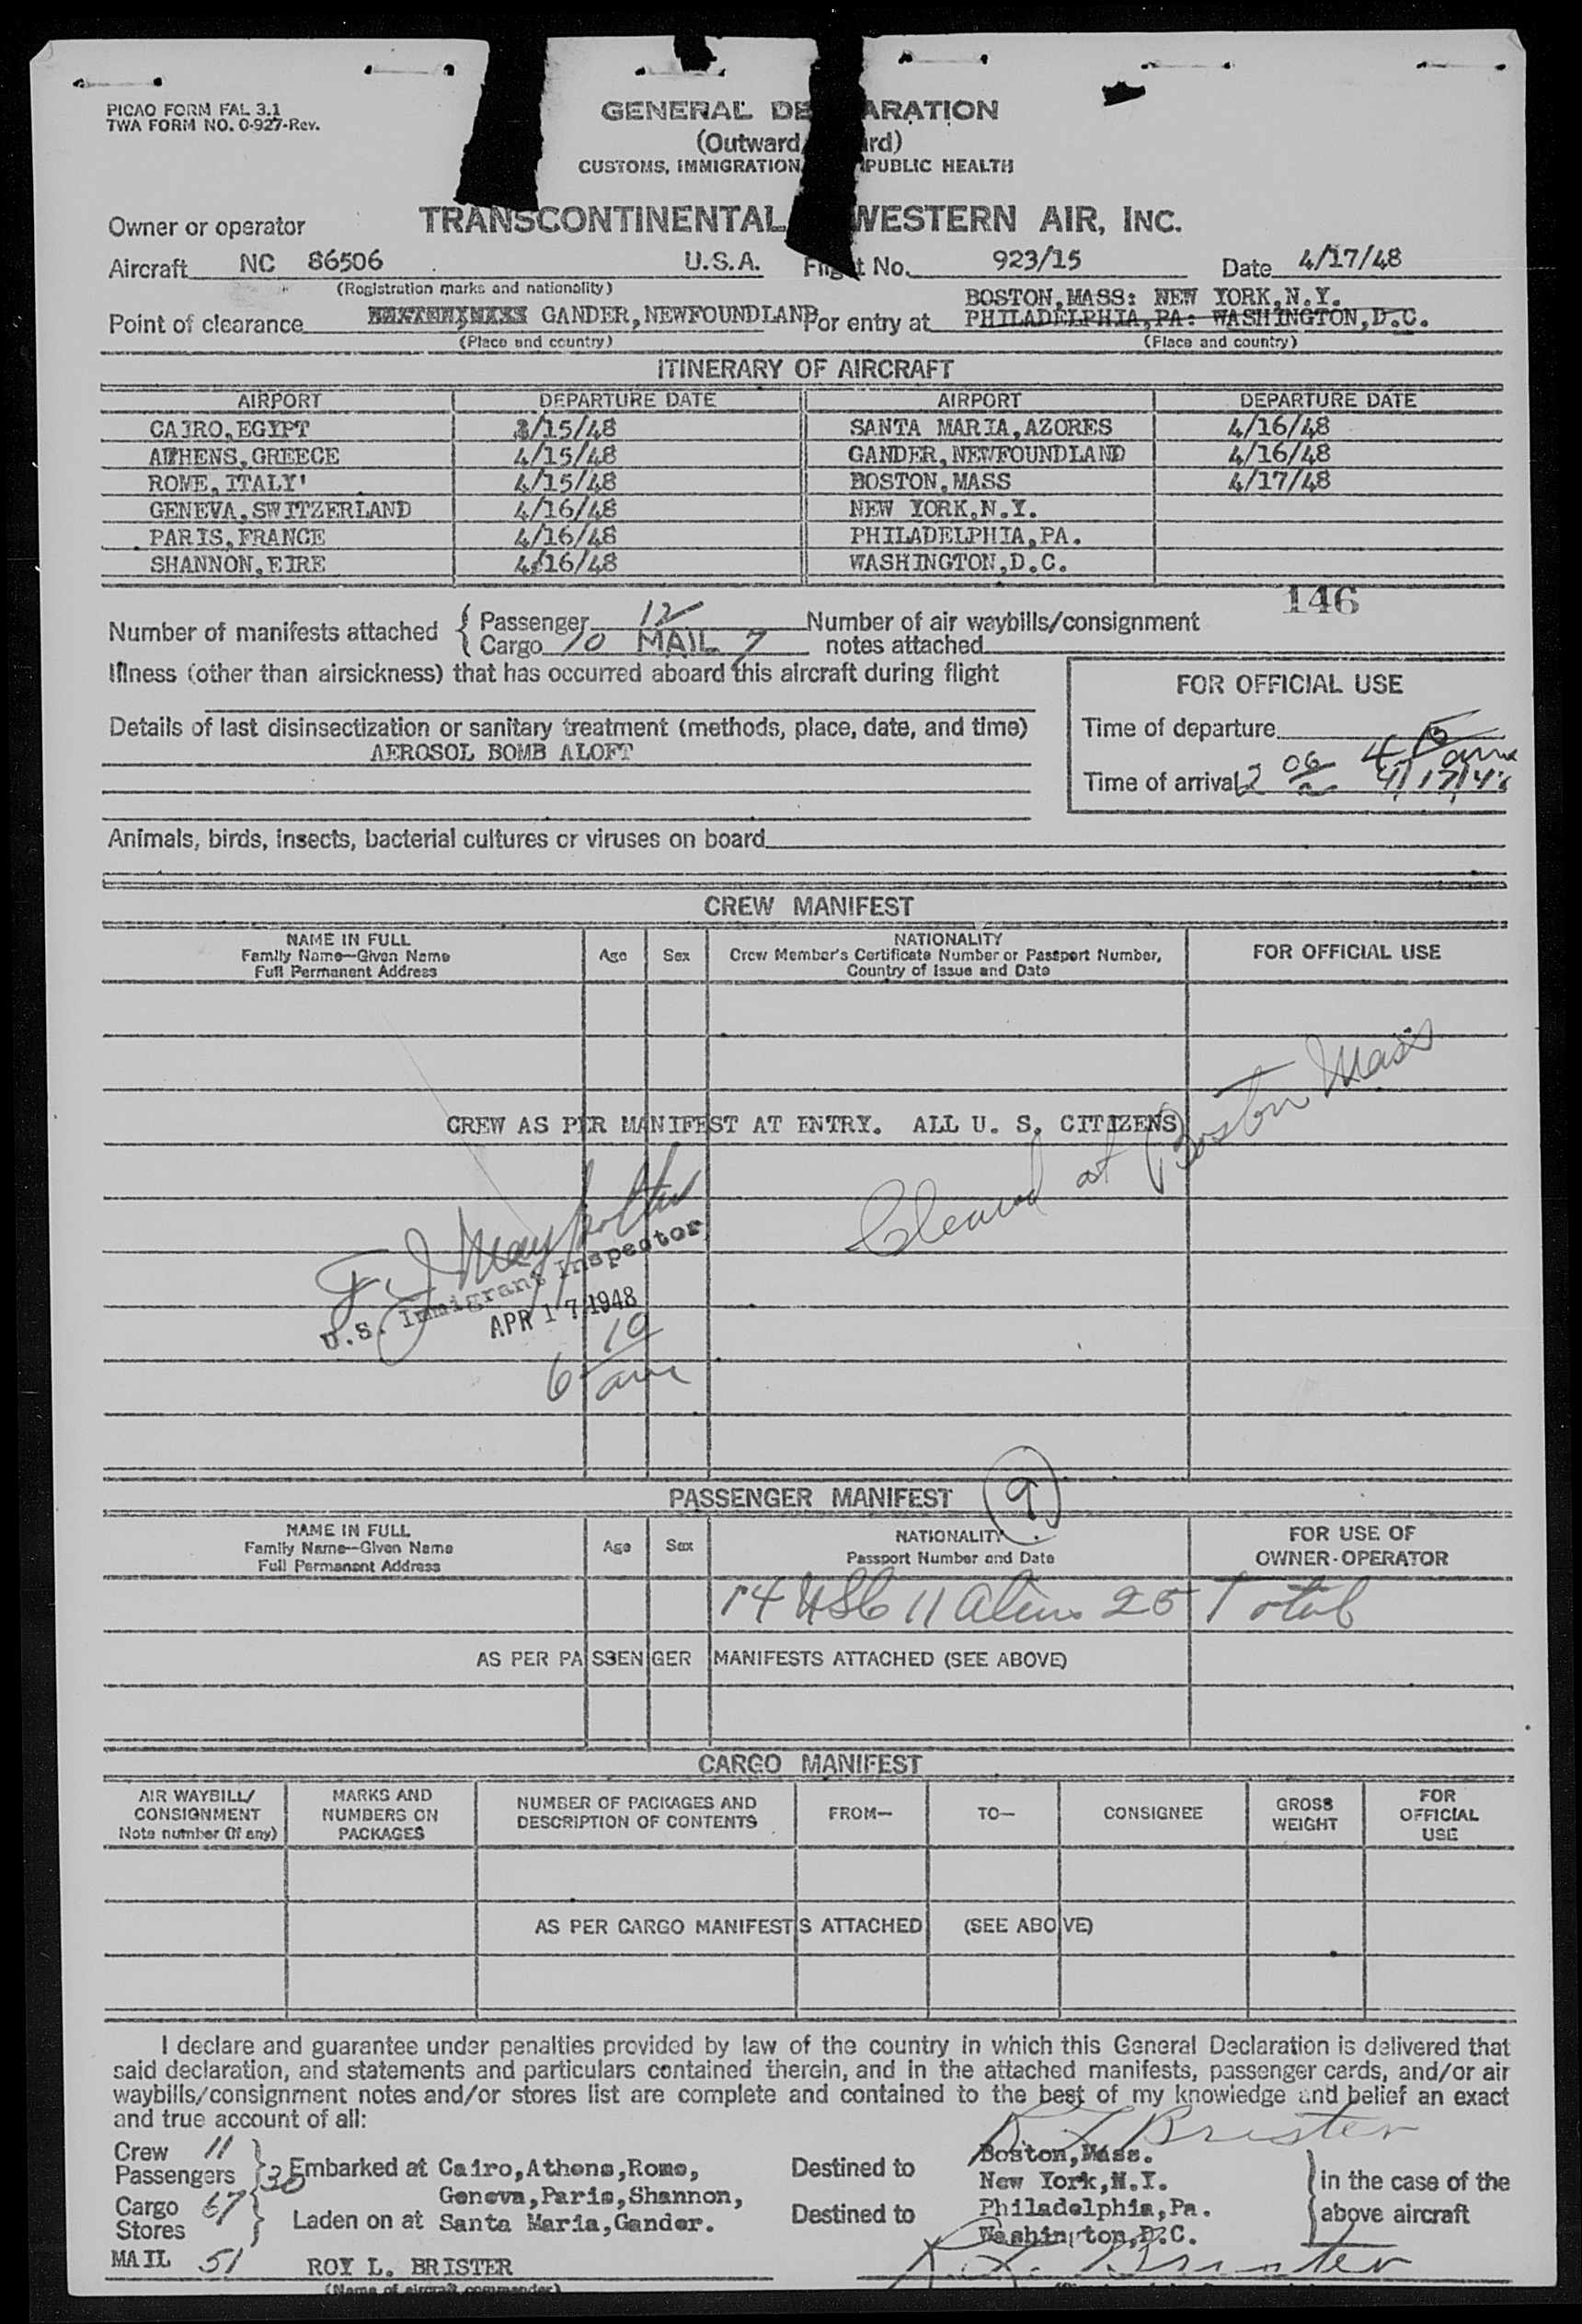 PICAO FORM FAL 3.1
TWA FORM NO. 0-927-Rev.
GENERAL DE ARATION
(Outward/ rd)
CUSTOMS, IMMIGRATION, PUBLIC HEALTH
Owner or operator TRANSCONTINENTAL WESTERN AIR, INC.
Aircraft NC 86506 U.S.A. Flight No. 923/15 Date 4/17/48
(Registration marks and nationality)
BOSTON,MASS: NEW YORK,N.Y.
Point of clearance GANDER,NEWFOUNDLAND For entry at PHILADELPHIA,PA: WASHINGTON,D.C.
(Place and country) (Place and country)
ITINERARY OF AIRCRAFT
AIRPORT DEPARTURE DATE AIRPORT DEPARTURE DATE
CAIRO,EGYPT /15/48 SANTA MARIA,AZORES 4/16/48
ATHENS,GREECE 4/15/48 GANDER,NEWFOUNDLAND 4/16/48
ROME,ITALY' 4/15/48 BOSTON,MASS 4/17/48
GENEVA,SWITZERLAND 4/16/48 NEW YORK,N.Y.
PARIS,FRANCE 4/16/48 PHILADELPHIA,PA.
SHANNON,EIRE 4/16/48 WASHINGTON,D.C.
146
Number of manifests attached { Passenger 12 Number of air waybills/consignment
Cargo 10 MAIL 7 notes attached
Illness (other than airsickness) that has occurred aboard this aircraft during flight
FOR OFFICIAL USE
Details of last disinsectization or sanitary treatment (methods, place, date, and time)
AEROSOL BOMB ALOFT
Time of departure
Time of arrival 2 06 4/17/48
Animals, birds, insects, bacterial cultures or viruses on board
CREW MANIFEST
NAME IN FULL
Family Name—Given Name
Full Permanent Address
Age Sex
NATIONALITY
Crew Member's Certificate Number or Passport Number,
Country of Issue and Date
FOR OFFICIAL USE
CREW AS PER MANIFEST AT ENTRY. ALL U. S. CITIZENS
Cleared at Boston Mass
U.S. Immigrant Inspector
APR 17 1948
6 10 am
PASSENGER MANIFEST 9
NAME IN FULL
Family Name—Given Name
Full Permanent Address
Age Sex
NATIONALITY
Passport Number and Date
FOR USE OF
OWNER-OPERATOR
14 USC 11 Aliens 25 Total
AS PER PASSENGER MANIFESTS ATTACHED (SEE ABOVE)
CARGO MANIFEST
AIR WAYBILL/
CONSIGNMENT
Note number (if any)
MARKS AND
NUMBERS ON
PACKAGES
NUMBER OF PACKAGES AND
DESCRIPTION OF CONTENTS
FROM— TO— CONSIGNEE
GROSS
WEIGHT
FOR
OFFICIAL
USE
AS PER CARGO MANIFESTS ATTACHED (SEE ABOVE)
I declare and guarantee under penalties provided by law of the country in which this General Declaration is delivered that
said declaration, and statements and particulars contained therein, and in the attached manifests, passenger cards, and/or air
waybills/consignment notes and/or stores list are complete and contained to the best of my knowledge and belief an exact
and true account of all:
R L Brister
Crew 11
Passengers 30 Embarked at Cairo,Athens,Rome,
Geneva,Paris,Shannon,
Cargo 67
Stores Laden on at Santa Maria,Gander.
Destined to Boston,Mass.
New York,N.Y.
Destined to Philadelphia,Pa.
Washington,D.C.
in the case of the
above aircraft
MAIL 51 ROY L. BRISTER R. L. Brister
(Name of aircraft commander)